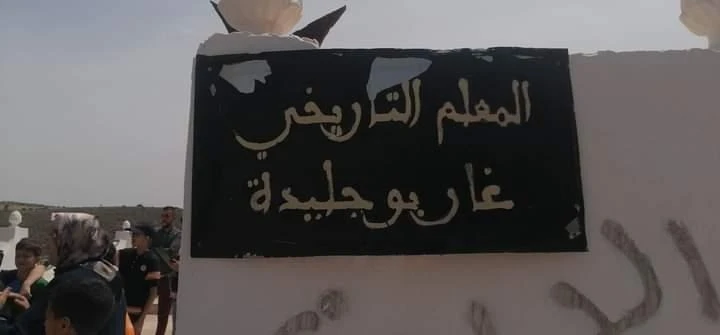 المعلم التاريخي
غار بوجليدة